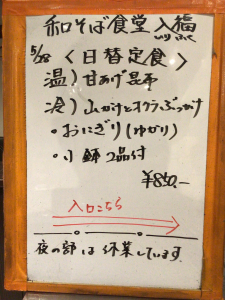 和そば食堂 入福
いり ふく
5/28 〈日替定食〉
温) 甘あげ昆布
冷) 山かけとオクラぶっかけ
・おにぎり(ゆかり)
・小鉢2品付
¥850.-
入口こちら
夜の部は休業しています